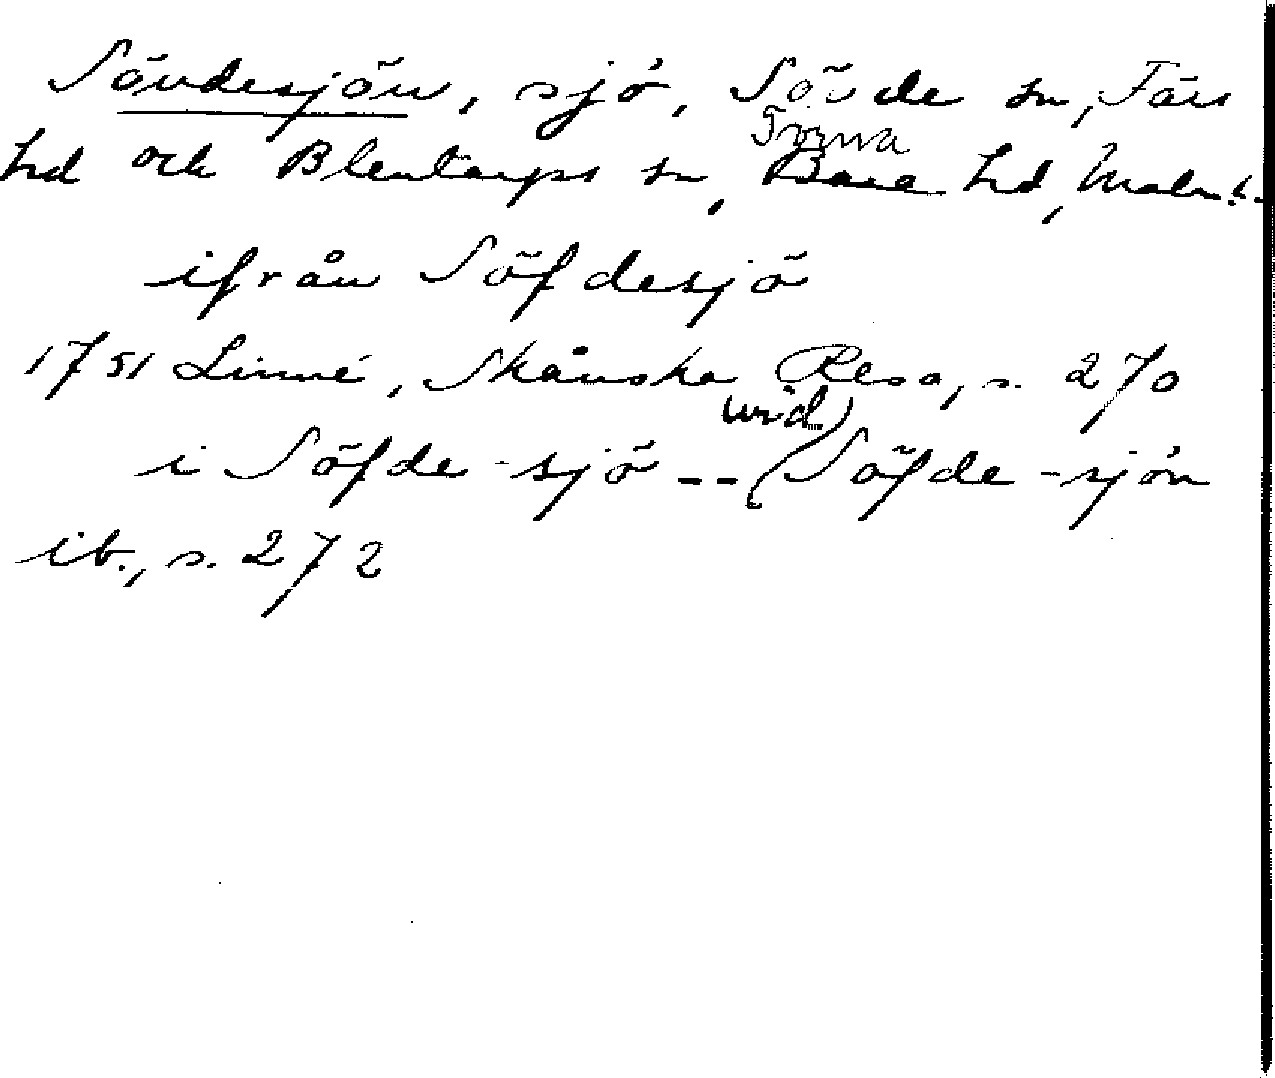 Sövdesjön, sjö, Sövde sn, Färs
Torna
hd och Blentarps sn, Bara hd, Malm. l.
ifrån Söfdesjö
1751 Linné, Skånska Resa, s. 270
wid
i Söfde-sjö -- (Söfde-sjön
ib., s. 272